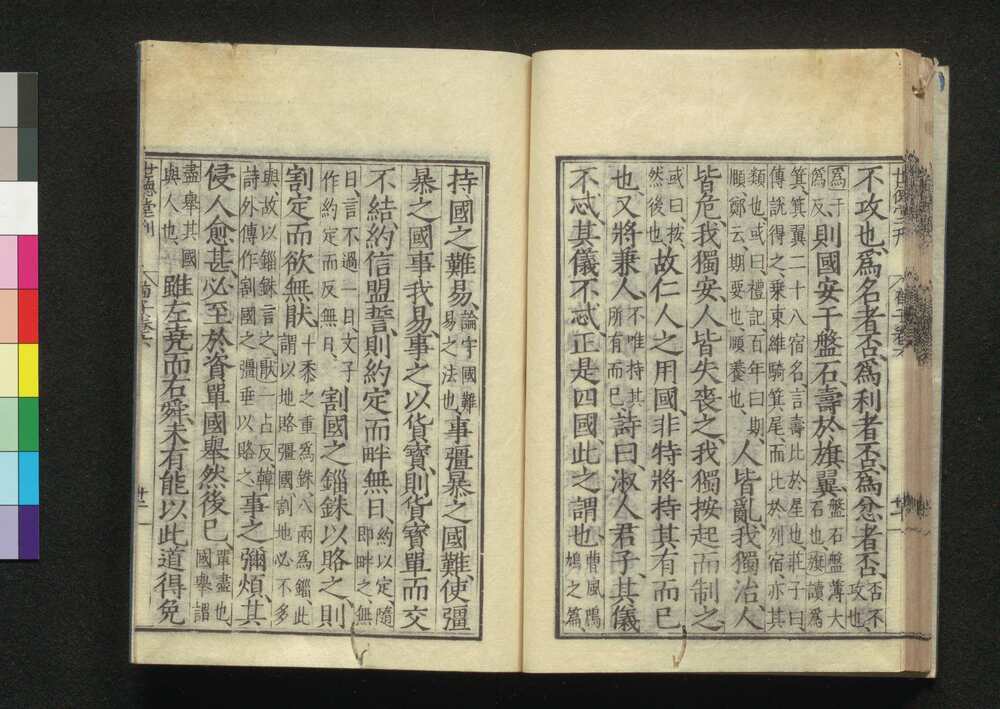 不攻也、爲名者否、爲利者否、爲忿者否、否不攻也、
爲于爲反、則國安于盤石、壽於旗翼、盤石盤薄大石也、旗讀爲
箕、箕翼二十八宿名、言壽比於星也、莊子曰傳說得之、乘東維騎箕尾、而比於列宿、亦其
類也、或曰、禮記、百年曰期、頤、鄭云、期要也、頤養也、人皆亂、我獨治、人
皆危、我獨安、人皆失喪之、我獨按起而制之、
或曰、按、然後也、故仁人之用國、非特將持其有而已
也、又將兼人、不唯持其所有而已、詩曰、淑人君子、其儀
不忒、其儀不忒、正是四國、此之謂也、曹風鳲鳩之篇、
持國之難易、論守國難易之法也、事彊暴之國難、使彊
暴之國事我易、事之以貨寶、則貨寶單而交
不結、約信盟誓、則約定而畔無日、約以定隨即畔之、無
日、言不過一日、文子作約定而反無日、割國之錙銖以賂之、則
割定而欲無猒、十黍之重爲銖、八兩爲錙、此謂以地賂彊國、割地必不多
與、故以錙銖言之、猒一占反、韓詩外傳作割國之彊垂以賂之、事之彌煩、其
侵人愈甚、必至於資單國舉、然後已、單盡也、國舉謂
盡舉其國與人也、雖左堯而右舜、未有能以此道得免
世德堂刊